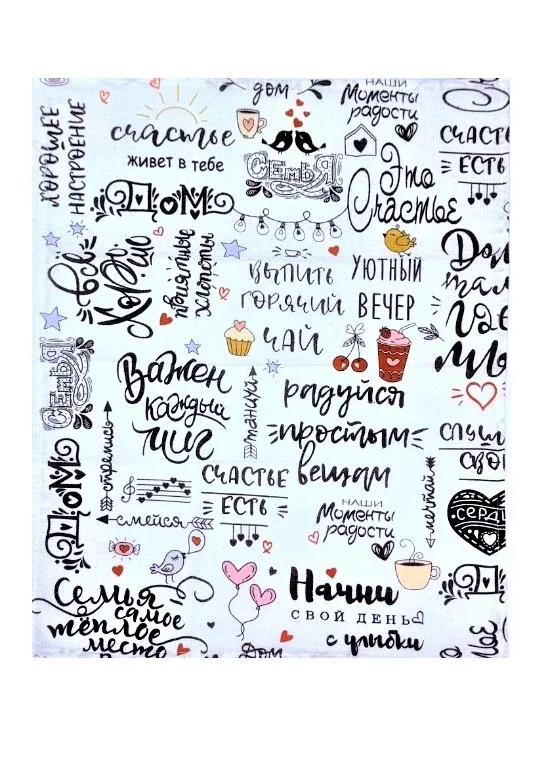 дом
НАШИ
Моменты
радости
ХОРОШЕЕ
НАСТРОЕНИЕ
счастье
живет в тебе
СЕМЬЯ
СЧАСТЬ
ЕСТЬ
ДОМ
Это
Счастье
всё
Хорошо
приятные
хлопоты
ВЫПИТЬ
ГОРЯЧИЙ
ЧАЙ
УЮТНЫЙ
ВЕЧЕР
Дом
там
где
мы
СЕМЬЯ
Важен
каждый
миг
танцуй
радуйся
простым
вещам
стремись
ДОМ
СЧАСТЬЕ
ЕСТЬ
смейся
НАШИ
Моменты
радости
мечтай
СЛУШ
СВО
СЕРД
Д
Семья
самое
тёплое
место
Начни
СВОЙ ДЕНЬ
с улыбки
Дом